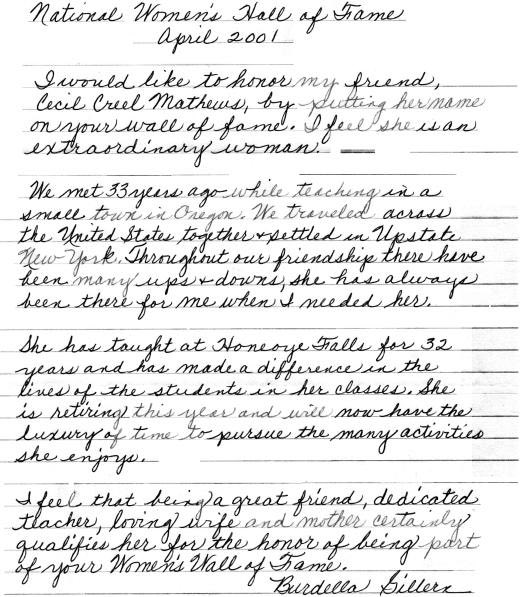 National Women's Hall of Fame
April 2001
I would like to honor my friend,
Cecil Creel Mathews, by putting her name
on your wall of fame. I feel she is an
extraordinary woman.
We met 33 years ago while teaching in a
small town in Oregon. We traveled across
the United States together + settled in Upstate
New York. Throughout our friendship there have
been many ups + downs, she has always
been there for me when I needed her.
She has taught at Honeoye Falls for 32
years and has made a difference in the
lives of the students in her classes. She
is retiring this year and will now have the
luxury of time to pursue the many activities
she enjoys.
I feel that being a great friend, dedicated
teacher, loving wife and mother certainly
qualifies her for the honor of being part
of your Women's Wall of Fame.
Burdella